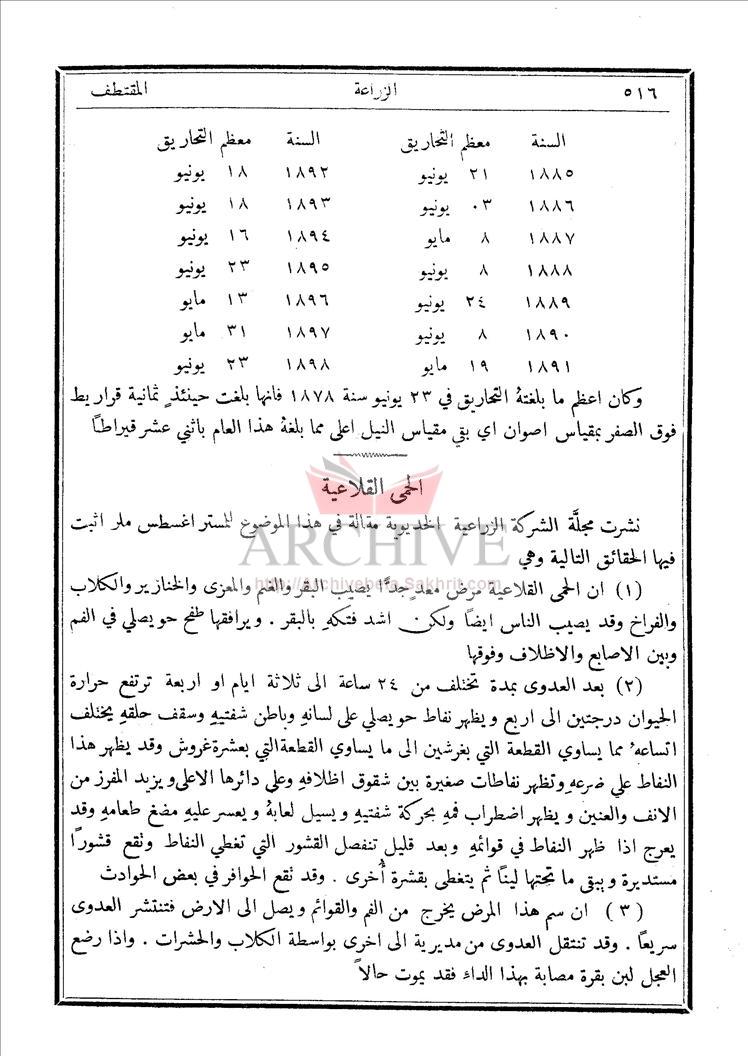 ٥١٦ الزراعة المقتطف
السنة معظم التحاريق السنة معظم التحاريق
١٨٨٥ ٢١ يونيو ١٨٩٢ ١٨ يونيو
١٨٨٦ ٠٣ يونيو ١٨٩٣ ١٨ يونيو
١٨٨٧ ٨ مايو ١٨٩٤ ١٦ يونيو
١٨٨٨ ٨ يونيو ١٨٩٥ ٢٣ يونيو
١٨٨٩ ٢٤ يونيو ١٨٩٦ ١٣ مايو
١٨٩٠ ٨ يونيو ١٨٩٧ ٣١ مايو
١٨٩١ ١٩ مايو ١٨٩٨ ٢٣ يونيو
وكان اعظم ما بلغتهُ التحاريق في ٢٣ يونيو سنة ١٨٧٨ فانها بلغت حينئذٍ ثمانية قراريط
فوق الصفر بمقياس اصوان اي بقي مقياس النيل اعلى مما بلغهُ هذا العام باثني عشر قيراطاً
الحمى القلاعية
نشرت مجلَّة الشركة الزراعية الخديوية مقالة في هذا الموضوع للمستر اغسطس ملر اثبت
ARCHIVE
فيها الحقائق التالية وهي
http://Archivebeta.Sakhrit.com
(١) ان الحمى القلاعية مرض معدٍ جدًّا يصيب البقر والغنم والمعزى والخنازير والكلاب
والفراخ وقد يصيب الناس ايضاً ولكن اشد فتكهِ بالبقر . ويرافقها طفح حويصلي في الفم
وبين الاصابع والاظلاف وفوقها
(٢) بعد العدوى بمدة تختلف من ٢٤ ساعة الى ثلاثة ايام او اربعة ترتفع حرارة
الحيوان درجتين الى اربع ويظهر نفاط حويصلي على لسانهِ وباطن شفتيهِ وسقف حلقهِ يختلف
اتساعهُ مما يساوي القطعة التي بغرشين الى ما يساوي القطعة التي بعشرة غروش وقد يظهر هذا
النفاط على ضرعهِ وتظهر نفاطات صغيرة بين شقوق اظلافهِ وعلى دائرها الاعلى ويزيد المفرز من
الانف والعنين ويظهر اضطراب فمهِ بحركة شفتيهِ ويسيل لعابهُ ويعسر عليهِ مضغ طعامهِ وقد
يعرج اذا ظهر النفاط في قوائمهِ وبعد قليل تنفصل القشور التي تغطي النفاط وتقع قشوراً
مستديرة ويبقى ما تحتها ليناً ثم يتغطى بقشرة أُخرى . وقد تقع الحوافر في بعض الحوادث
(٣) ان سم هذا المرض يخرج من الفم والقوائم ويصل الى الارض فتنتشر العدوى
سريعاً . وقد تنتقل العدوى من مديرية الى اخرى بواسطة الكلاب والحشرات . واذا رضع
العجل لبن بقرة مصابة بهذا الداءِ فقد يموت حالاً